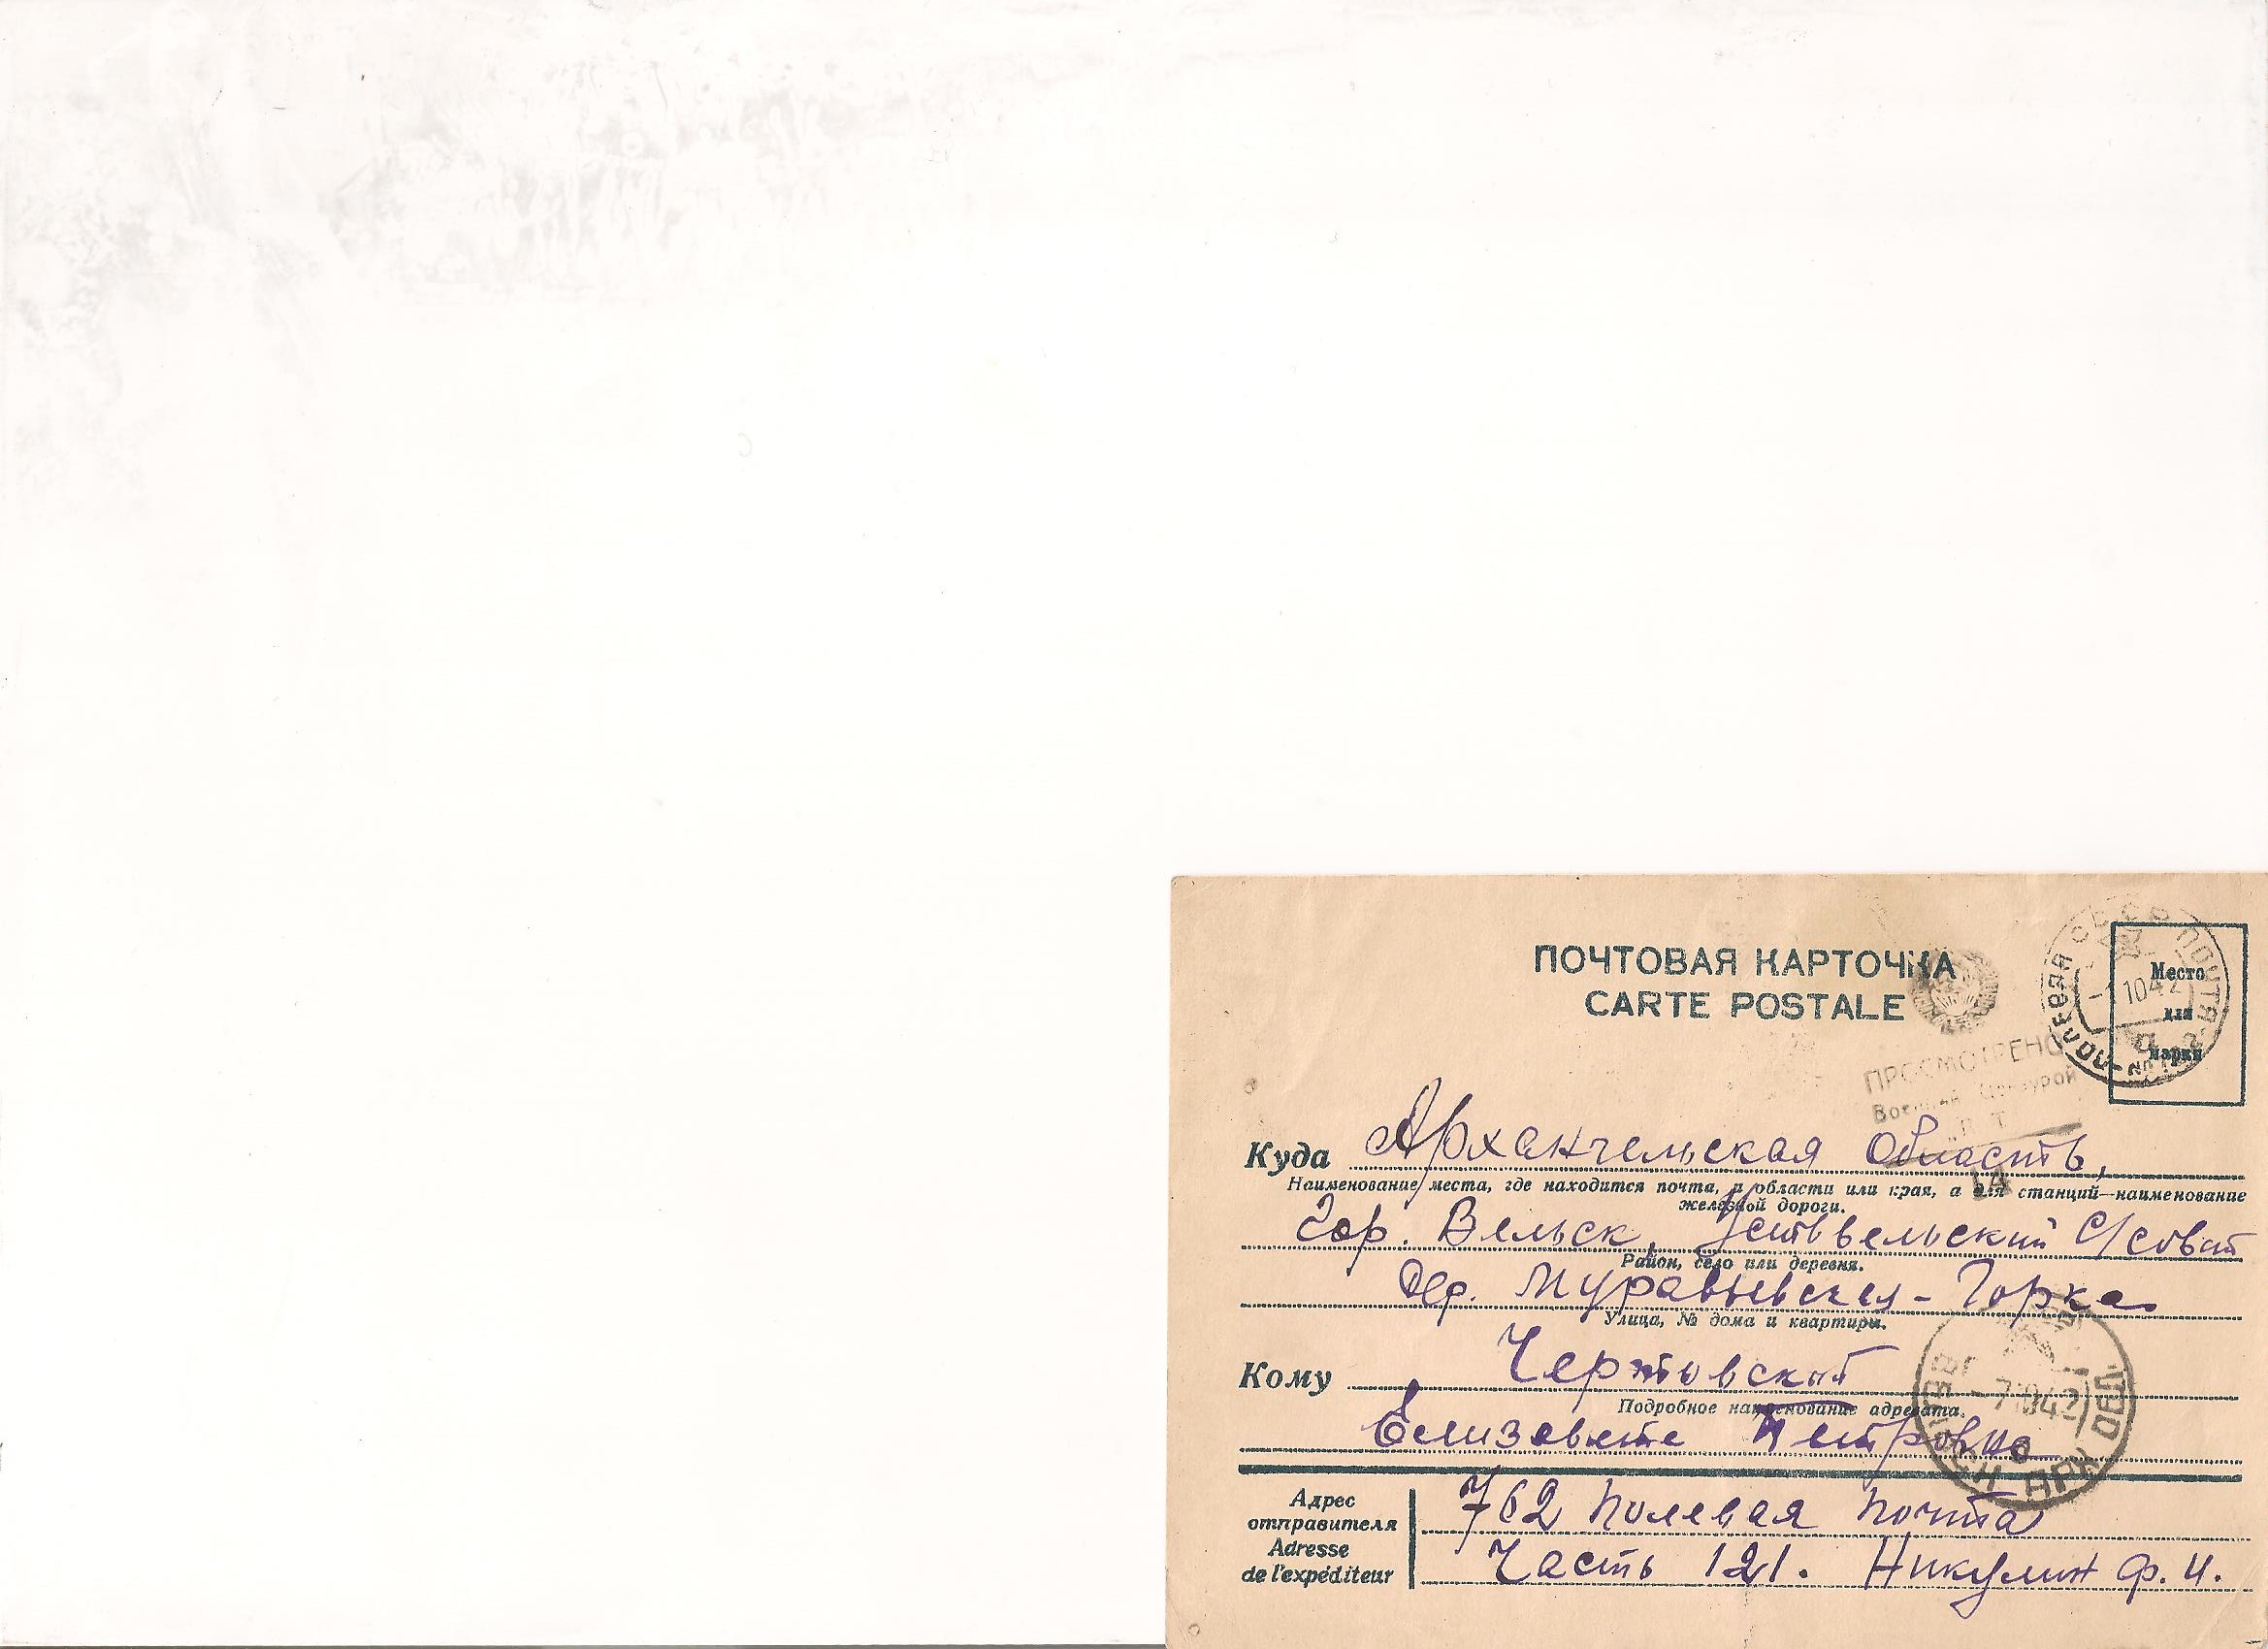 ПОЧТОВАЯ КАРТОЧКА
CARTE POSTALE
Место
для
марки
СССР ПОЧТА
ПОЛЕВАЯ
1042
ПРОСМОТРЕНО
Военной Цензурой
Куда Архангельская область,
Наименование места, где находится почта, и области или края, а для станций—наименование
железной дороги.
гор. Вельск, Устьвельский с/совет
Район, село или деревня.
дер. Муравьевская-Горка
Улица, № дома и квартиры.
Кому Чертовской
Подробное наименование адресата.
Елизавете Петровне
-71042
АРХ ОБЛ
Адрес
отправителя
Adresse
de l'expéditeur
762 полевая почта
Часть 121. Никулин Ф. И.